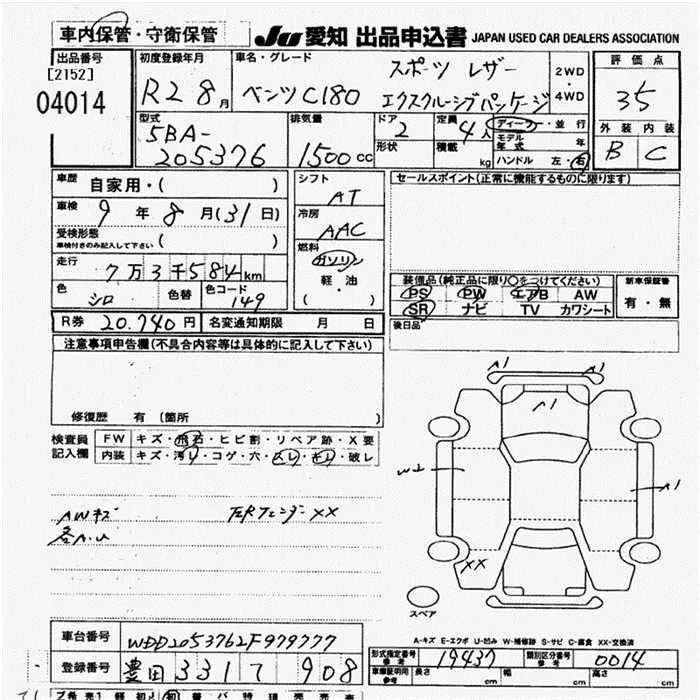 車内保管・守衛保管
JU 愛知 出品申込書 JAPAN USED CAR DEALERS ASSOCIATION
出品番号
[2152]
04014
初度登録年月
R2 8月
車名・グレード
スポーツ レザー
ベンツC180 エクスクルーシブパッケージ
2WD
・
4WD
評価点
35
外装 内装
B C
型式
5BA-
205376
排気量
1500cc
ドア
2
形状
定員
4人
積載
kg
ディーラー・並行
モデル年式 年
ハンドル 左・右
車歴 自家用・( )
車検 9年8月(31日)
受検形態
車検付きのみ記入して下さい ( )
走行
7万3千584km
色 シロ 色替 色コード 149
シフト
AT
冷房
AAC
燃料
ガソリン
軽・油
( )
セールスポイント(正常に機能するものに限ります)
装備品(純正品に限り○をつけてください)
PS PW エアB AW
SR ナビ TV カワシート
新車保証書
有・無
後日品
R券 20.740円 名変通知期限 月 日
注意事項申告欄(不具合内容等は具体的に記入して下さい)
修復歴 有 (箇所 )
検査員
記入欄
FW キズ・飛石・ヒビ割・リペア跡・X要
内装 キズ・汚れ・コゲ・穴・スレ・キレ・破レ
AWキズ
各A.U
左Rフェンダー××
A1 A1
A1
W2
A1
××
スペア
A-キズ E-エクボ U-凹み W-補修跡 S-サビ C-腐食 XX-交換済
車台番号 WDD2053762F979777
登録番号 豊田 331 て 908
形式指定番号
参考
19437
類別区分番号
参考
0014
車庫証明用
参考
長さ cm 幅 cm 高さ cm